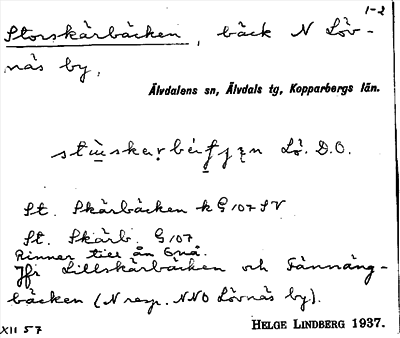 1-2
Storskärbäcken, bäck N Löv-
näs by,
Älvdalens sn, Älvdals tg, Kopparbergs län.
Lö. D.O.
St. Skärbäcken k G 107 SV
St. Skärb. G 107
Rinner till ån Gnå.
Jfr Lillskärbäcken och Fännäng-
bäcken (N resp. NNO Lövnäs by).
XII 57
HELGE LINDBERG 1937.